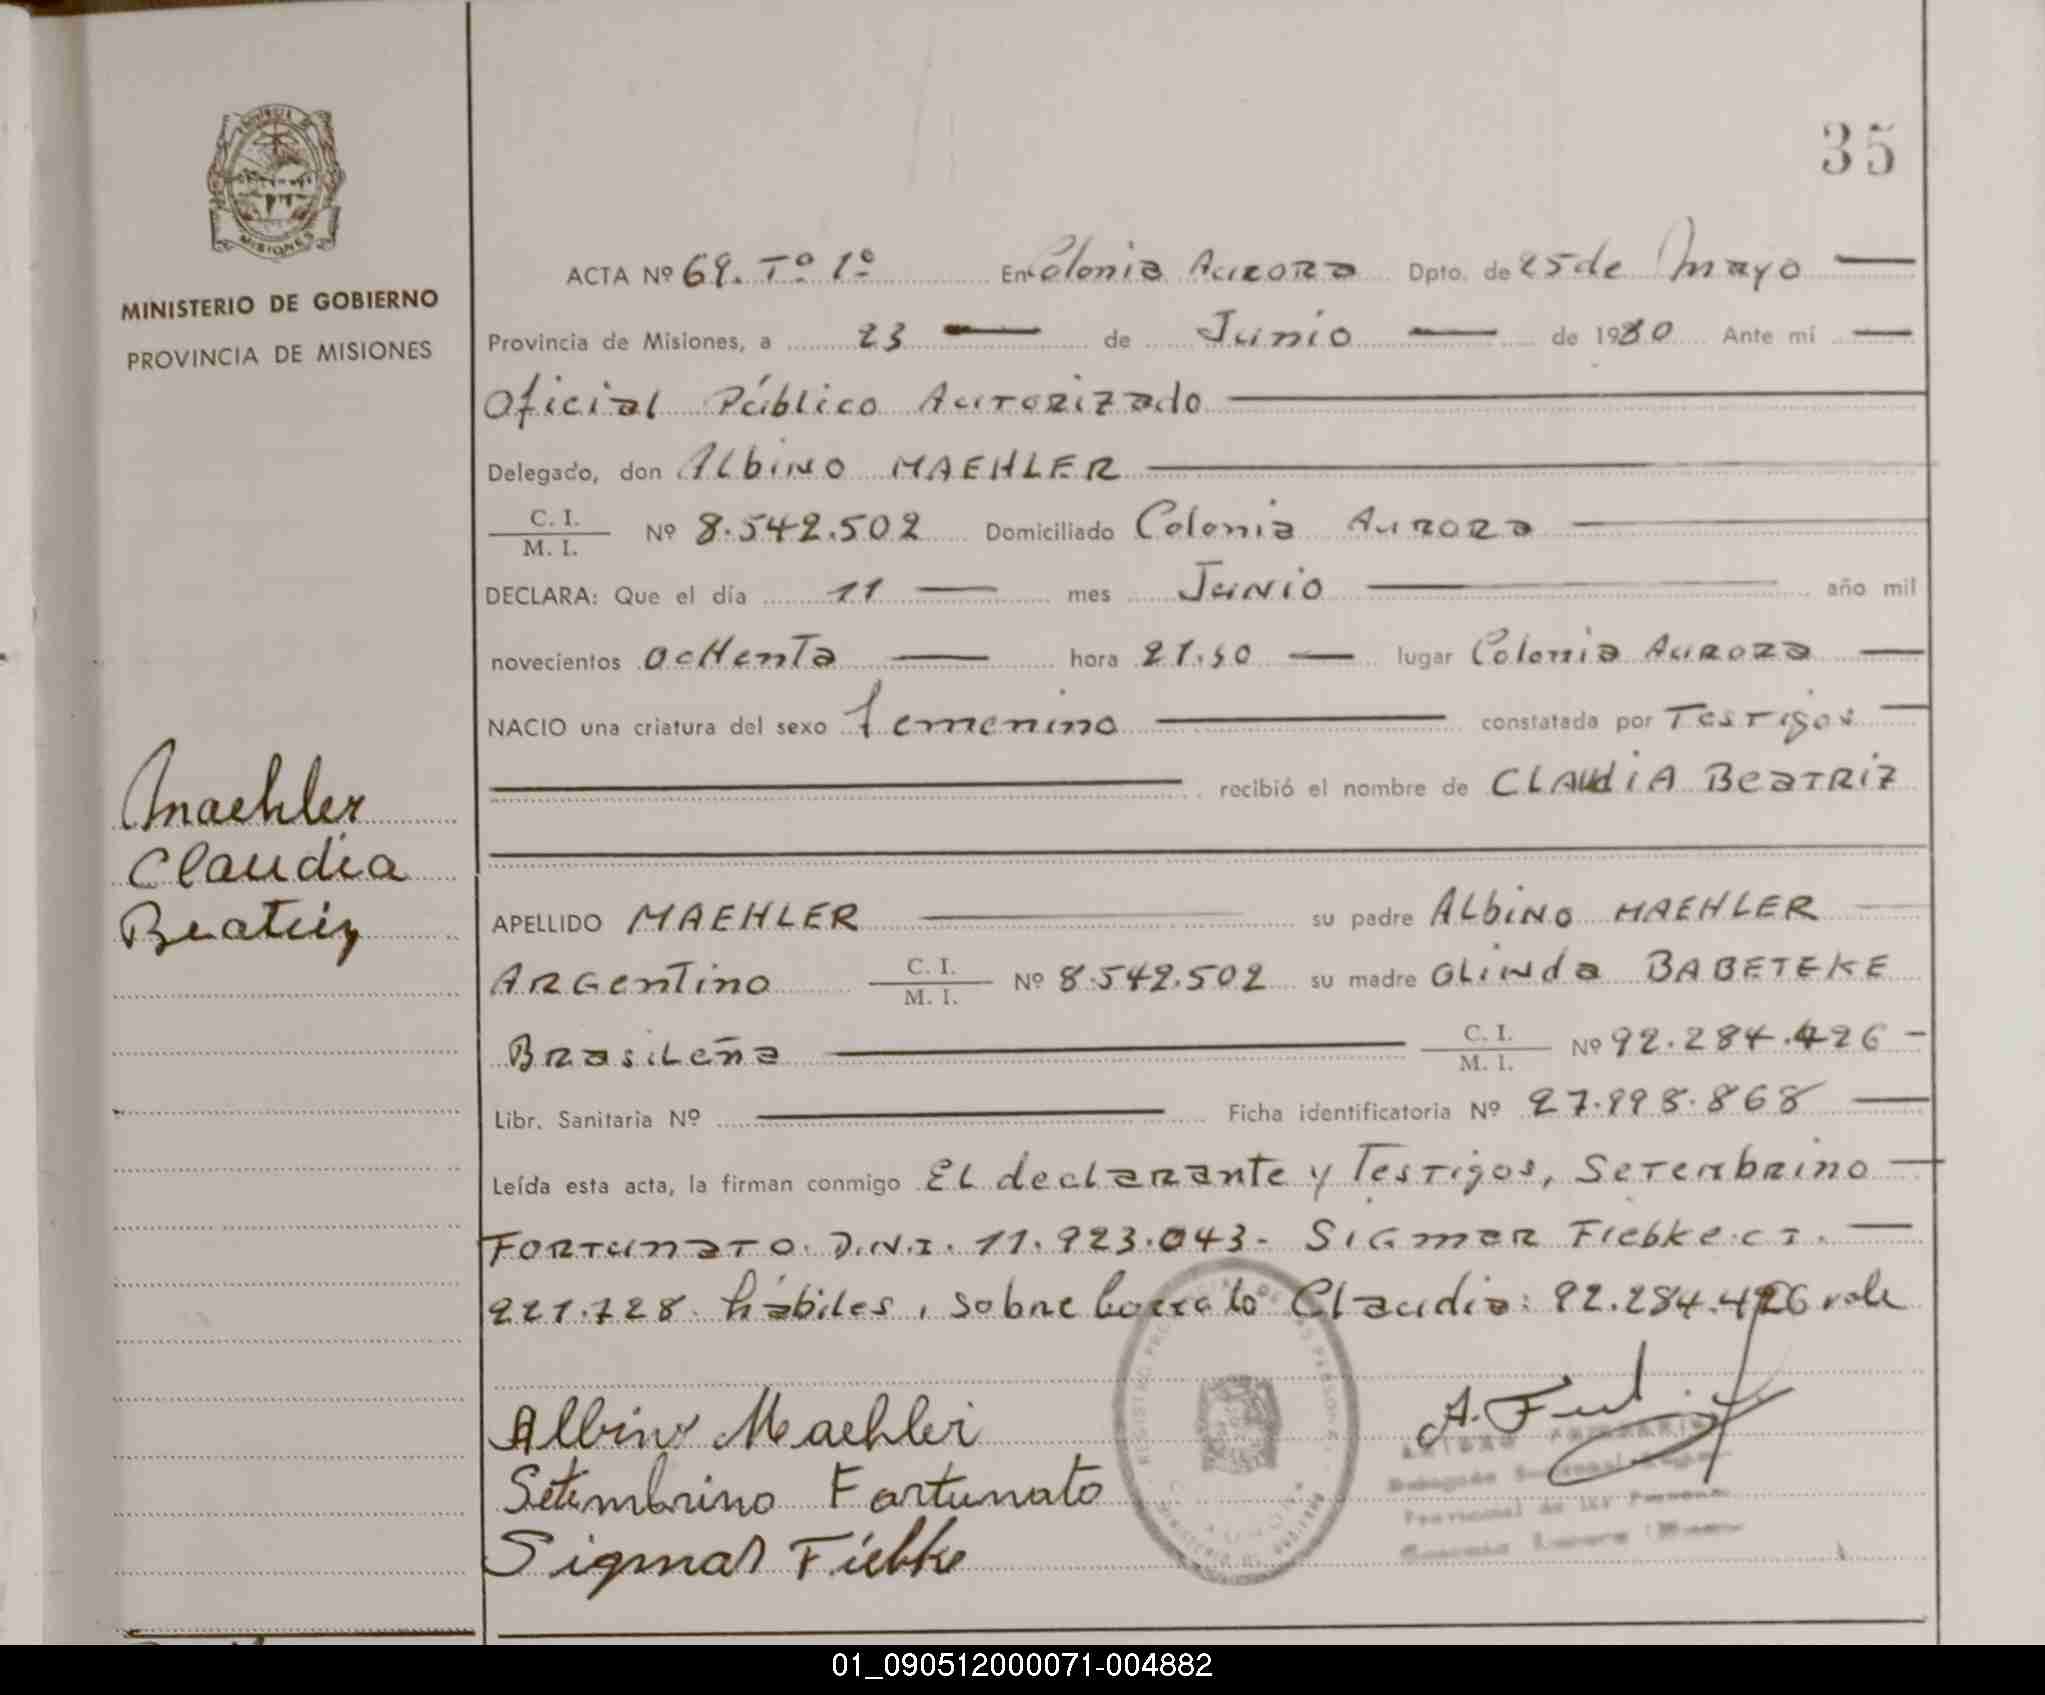 35
MISIONES
MINISTERIO DE GOBIERNO
PROVINCIA DE MISIONES
Maehler
Claudia
Beatriz
ACTA Nº 69. Tº 1º En Colonia Aurora Dpto. de 25 de Mayo
Provincia de Misiones, a 23 de Junio de 1980 Ante mí
Oficial Público Autorizado
Delegado, don Albino MAEHLER
C. I.
M. I. Nº 8.542.502 Domiciliado Colonia Aurora
DECLARA: Que el día 11 mes Junio año mil
novecientos ochenta hora lugar Colonia Aurora
NACIO una criatura del sexo femenino constatada por Testigos
recibió el nombre de CLAUdiA BeaTRiz
APELLIDO MAEHLER su padre ALbiNo MAEHLER
ARGenTino C. I.
M. I. Nº 8.542.502 su madre OLiNda BABETEKE
Brasileña C. I.
M. I. Nº 92.284.426
Libr. Sanitaria Nº Ficha identificatoria Nº
Leída esta acta, la firman conmigo El declarante y Testigos, Setembrino
FORTUNATO. D.N.I. 11.923.043. Sigmar Fiebke C I.
221.728. hábiles, sobre borrado Claudia: 92.284.426 vale
Albino Maehler
Setembrino Fortunato
Sigmar Fiebke
01_090512000071-004882